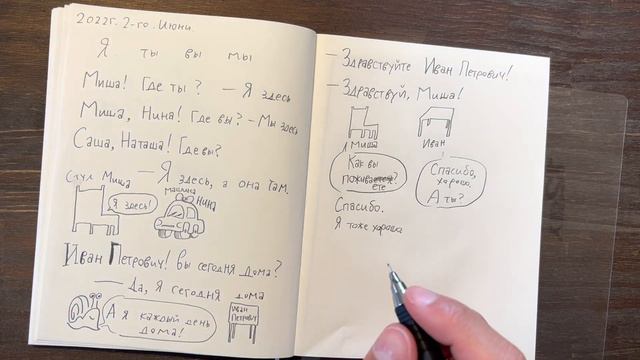 2022г. 2-го. Июни
Я ты вы мы
Миша! Где ты? – Я здесь
Миша, Нина! Где вы? – Мы здесь
Саша, Наташа! Где вы?
– Я здесь, а она там.
Стул Миша
Я здесь!
машина
Нина
Иван Петрович! Вы сегодня дома?
– Да, я сегодня дома
А я каждый день
дома!
Иван
Петрович
– Здравствуйте Иван Петрович!
– Здравствуй, Миша!
Миша
Иван
Как вы
поживаете?
ете
Спасибо,
хорошо.
А ты?
Спасибо.
Я тоже хорошо